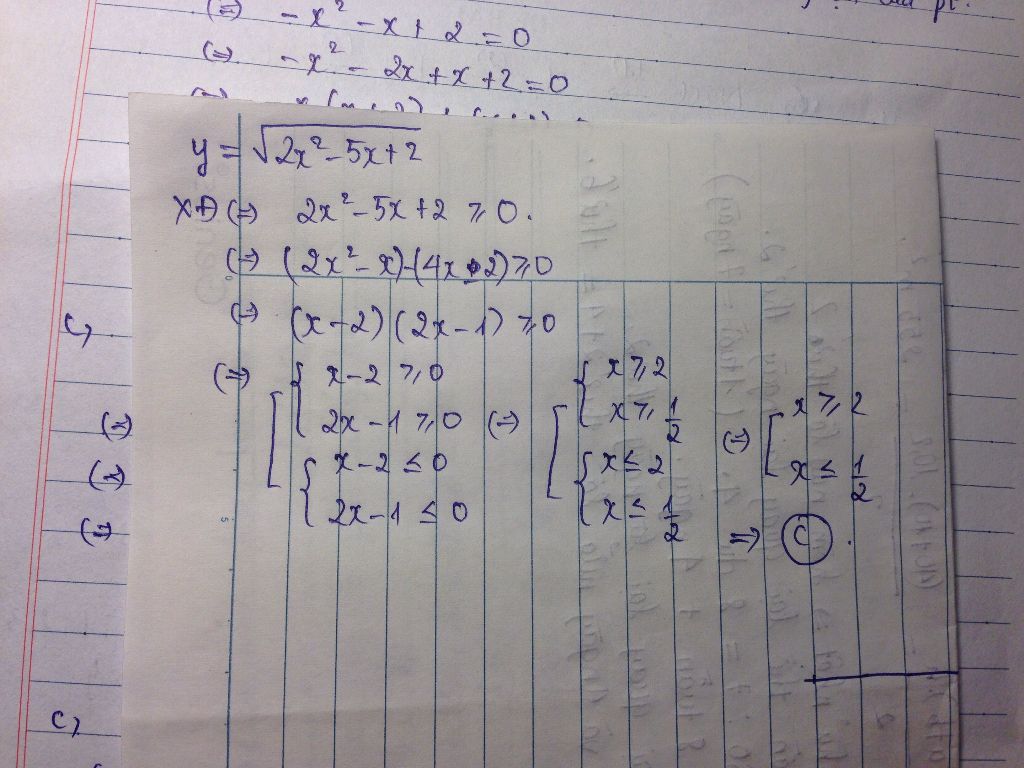 (=) -x² - x + 2 = 0
(=) -x² - 2x + x + 2 = 0
y = √(2x² - 5x + 2)
XĐ (=) 2x² - 5x + 2 ⩾ 0.
(=) (2x² - x) - (4x - 2) ⩾ 0
c, (=) (x - 2) (2x - 1) ⩾ 0
(=) [ { x - 2 ⩾ 0
2x - 1 ⩾ 0
{ x - 2 ≤ 0
2x - 1 ≤ 0
(=) [ { x ⩾ 2
x ⩾ 1/2
{ x ≤ 2
x ≤ 1/2
(=) [ x ⩾ 2
x ≤ 1/2
=> C .
(=)
(=)
(=)
c,